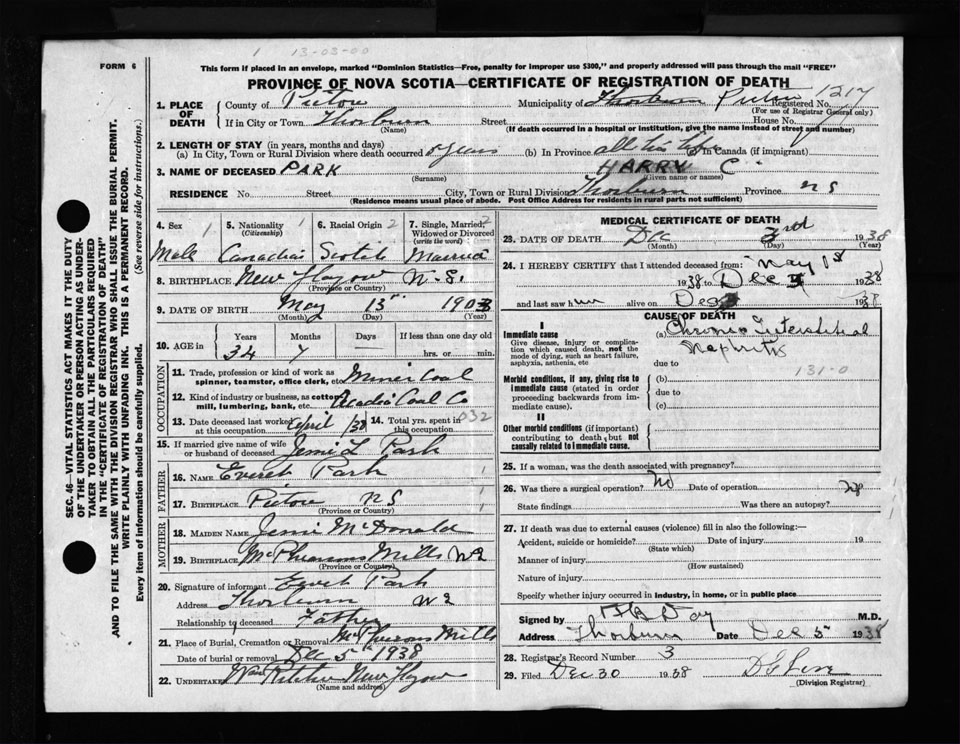 1 13-03-00
FORM 6
This form if placed in an envelope, marked "Dominion Statistics—Free, penalty for improper use $300," and properly addressed will pass through the mail "FREE"
PROVINCE OF NOVA SCOTIA—CERTIFICATE OF REGISTRATION OF DEATH
SEC. 46–VITAL STATISTICS ACT MAKES IT THE DUTY
OF THE UNDERTAKER OR PERSON ACTING AS UNDER-
TAKER TO OBTAIN ALL THE PARTICULARS REQUIRED
IN THE "CERTIFICATE OF REGISTRATION OF DEATH"
AND TO FILE THE SAME WITH THE DIVISION REGISTRAR WHO SHALL ISSUE THE BURIAL PERMIT.
WRITE PLAINLY WITH UNFADING INK. THIS IS A PERMANENT RECORD.
Every item of information should be carefully supplied. (See reverse side for instructions.)
1. PLACE OF DEATH County of Pictou Municipality of Thorburn Pictou Registered No. 1217
(For use of Registrar General only)
If in City or Town Thorburn Street House No.
(Name) (If death occurred in a hospital or institution, give the name instead of street and number)
2. LENGTH OF STAY (in years, months and days)
(a) In City, Town or Rural Division where death occurred 5 years (b) In Province all his life (c) In Canada (if immigrant)
3. NAME OF DECEASED PARK HARRY C
(Surname) (Given name or names)
RESIDENCE No. Street City, Town or Rural Division Thorburn Province NS
(Residence means usual place of abode. Post Office Address for residents in rural parts not sufficient)
4. Sex 1 5. Nationality 1 6. Racial Origin 2 7. Single, Married, 2
(Citizenship) Widowed or Divorced
(write the word)
Male Canadian Scotch Married
8. BIRTHPLACE New Glasgow N.S.
(Province or Country)
9. DATE OF BIRTH May 13 1903
(Month) (Day) (Year)
10. AGE in Years Months Days If less than one day old
34 7 — hrs. or min.
OCCUPATION
11. Trade, profession or kind of work as
spinner, teamster, office clerk, etc. Miner Coal
12. Kind of industry or business, as cotton
mill, lumbering, bank, etc. Acadia Coal Co
13. Date deceased last worked at this occupation April /38 14. Total yrs. spent in this occupation 032
15. If married give name of wife
or husband of deceased Jemi L Park
FATHER
16. NAME Everett Park 1
17. BIRTHPLACE Pictou NS 1
(Province or Country)
MOTHER
18. MAIDEN NAME Jessie McDonald
19. BIRTHPLACE McPhersons Mills NS
(Province or Country)
20. Signature of informant Everett Park
Address Thorburn NS
Relationship to deceased Father
21. Place of Burial, Cremation or Removal McPhersons Mills
Date of burial or removal Dec 5th 1938
22. UNDERTAKER Wm Ritchie New Glasgow
(Name and address)
MEDICAL CERTIFICATE OF DEATH
23. DATE OF DEATH Dec 3rd 1938
(Month) (Day) (Year)
24. I HEREBY CERTIFY that I attended deceased from May 1st
1938 to Dec 3 1938
and last saw him alive on Dec 3 1938
CAUSE OF DEATH
I
Immediate cause
Give disease, injury or complication which caused death, not the mode of dying, such as heart failure, asphyxia, asthenia, etc
(a) Chronic Interstitial
Nephritis
due to
131-0
Morbid conditions, if any, giving rise to immediate cause (stated in order proceeding backwards from immediate cause).
(b)
due to
(c)
II
Other morbid conditions (if important) contributing to death but not causally related to immediate cause.
25. If a woman, was the death associated with pregnancy?
26. Was there a surgical operation? No Date of operation
State findings Was there an autopsy? No
27. If death was due to external causes (violence) fill in also the following:—
Accident, suicide or homicide? Date of injury 19
(State which)
Manner of injury
(How sustained)
Nature of injury
Specify whether injury occurred in industry, in home, or in public place
Signed by Day M.D.
Address Thorburn Date Dec 5th 1938
28. Registrar's Record Number 3
29. Filed Dec 30 1938
(Division Registrar)